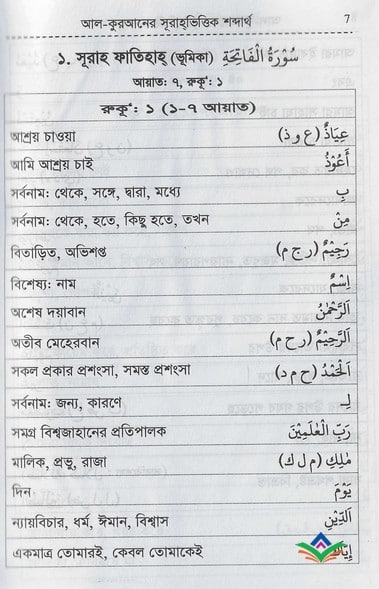 আল-কুরআনের সূরাহ্‌ভিত্তিক শব্দার্থ 7
১. সূরাহ্ ফাতিহাহ্ (ভূমিকা) سُوْرَةُ الْفَاتِحَةِ
আয়াত: ৭, রুকূ': ১
রুকূ': ১ (১-৭ আয়াত)
আশ্রয় চাওয়া عِيَاذٌ (ع و ذ)
আমি আশ্রয় চাই أَعُوْذُ
সর্বনাম: থেকে, সঙ্গে, দ্বারা, মধ্যে بِ
সর্বনাম: থেকে, হতে, কিছু হতে, তখন مِنْ
বিতাড়িত, অভিশপ্ত رَجِيْمٌ (ر ج م)
বিশেষ্য: নাম اِسْمٌ
অশেষ দয়াবান اَلرَّحْمٰنُ
অতীব মেহেরবান اَلرَّحِيْمُ (ر ح م)
সকল প্রকার প্রশংসা, সমস্ত প্রশংসা اَلْحَمْدُ (ح م د)
সর্বনাম: জন্য, কারণে لِـ
সমগ্র বিশ্বজাহানের প্রতিপালক رَبِّ الْعٰلَمِيْنَ
মালিক, প্রভু, রাজা مٰلِكِ (م ل ك)
দিন يَوْمَ
ন্যায়বিচার, ধর্ম, ঈমান, বিশ্বাস الدِّيْنِ
একমাত্র তোমারই, কেবল তোমাকেই